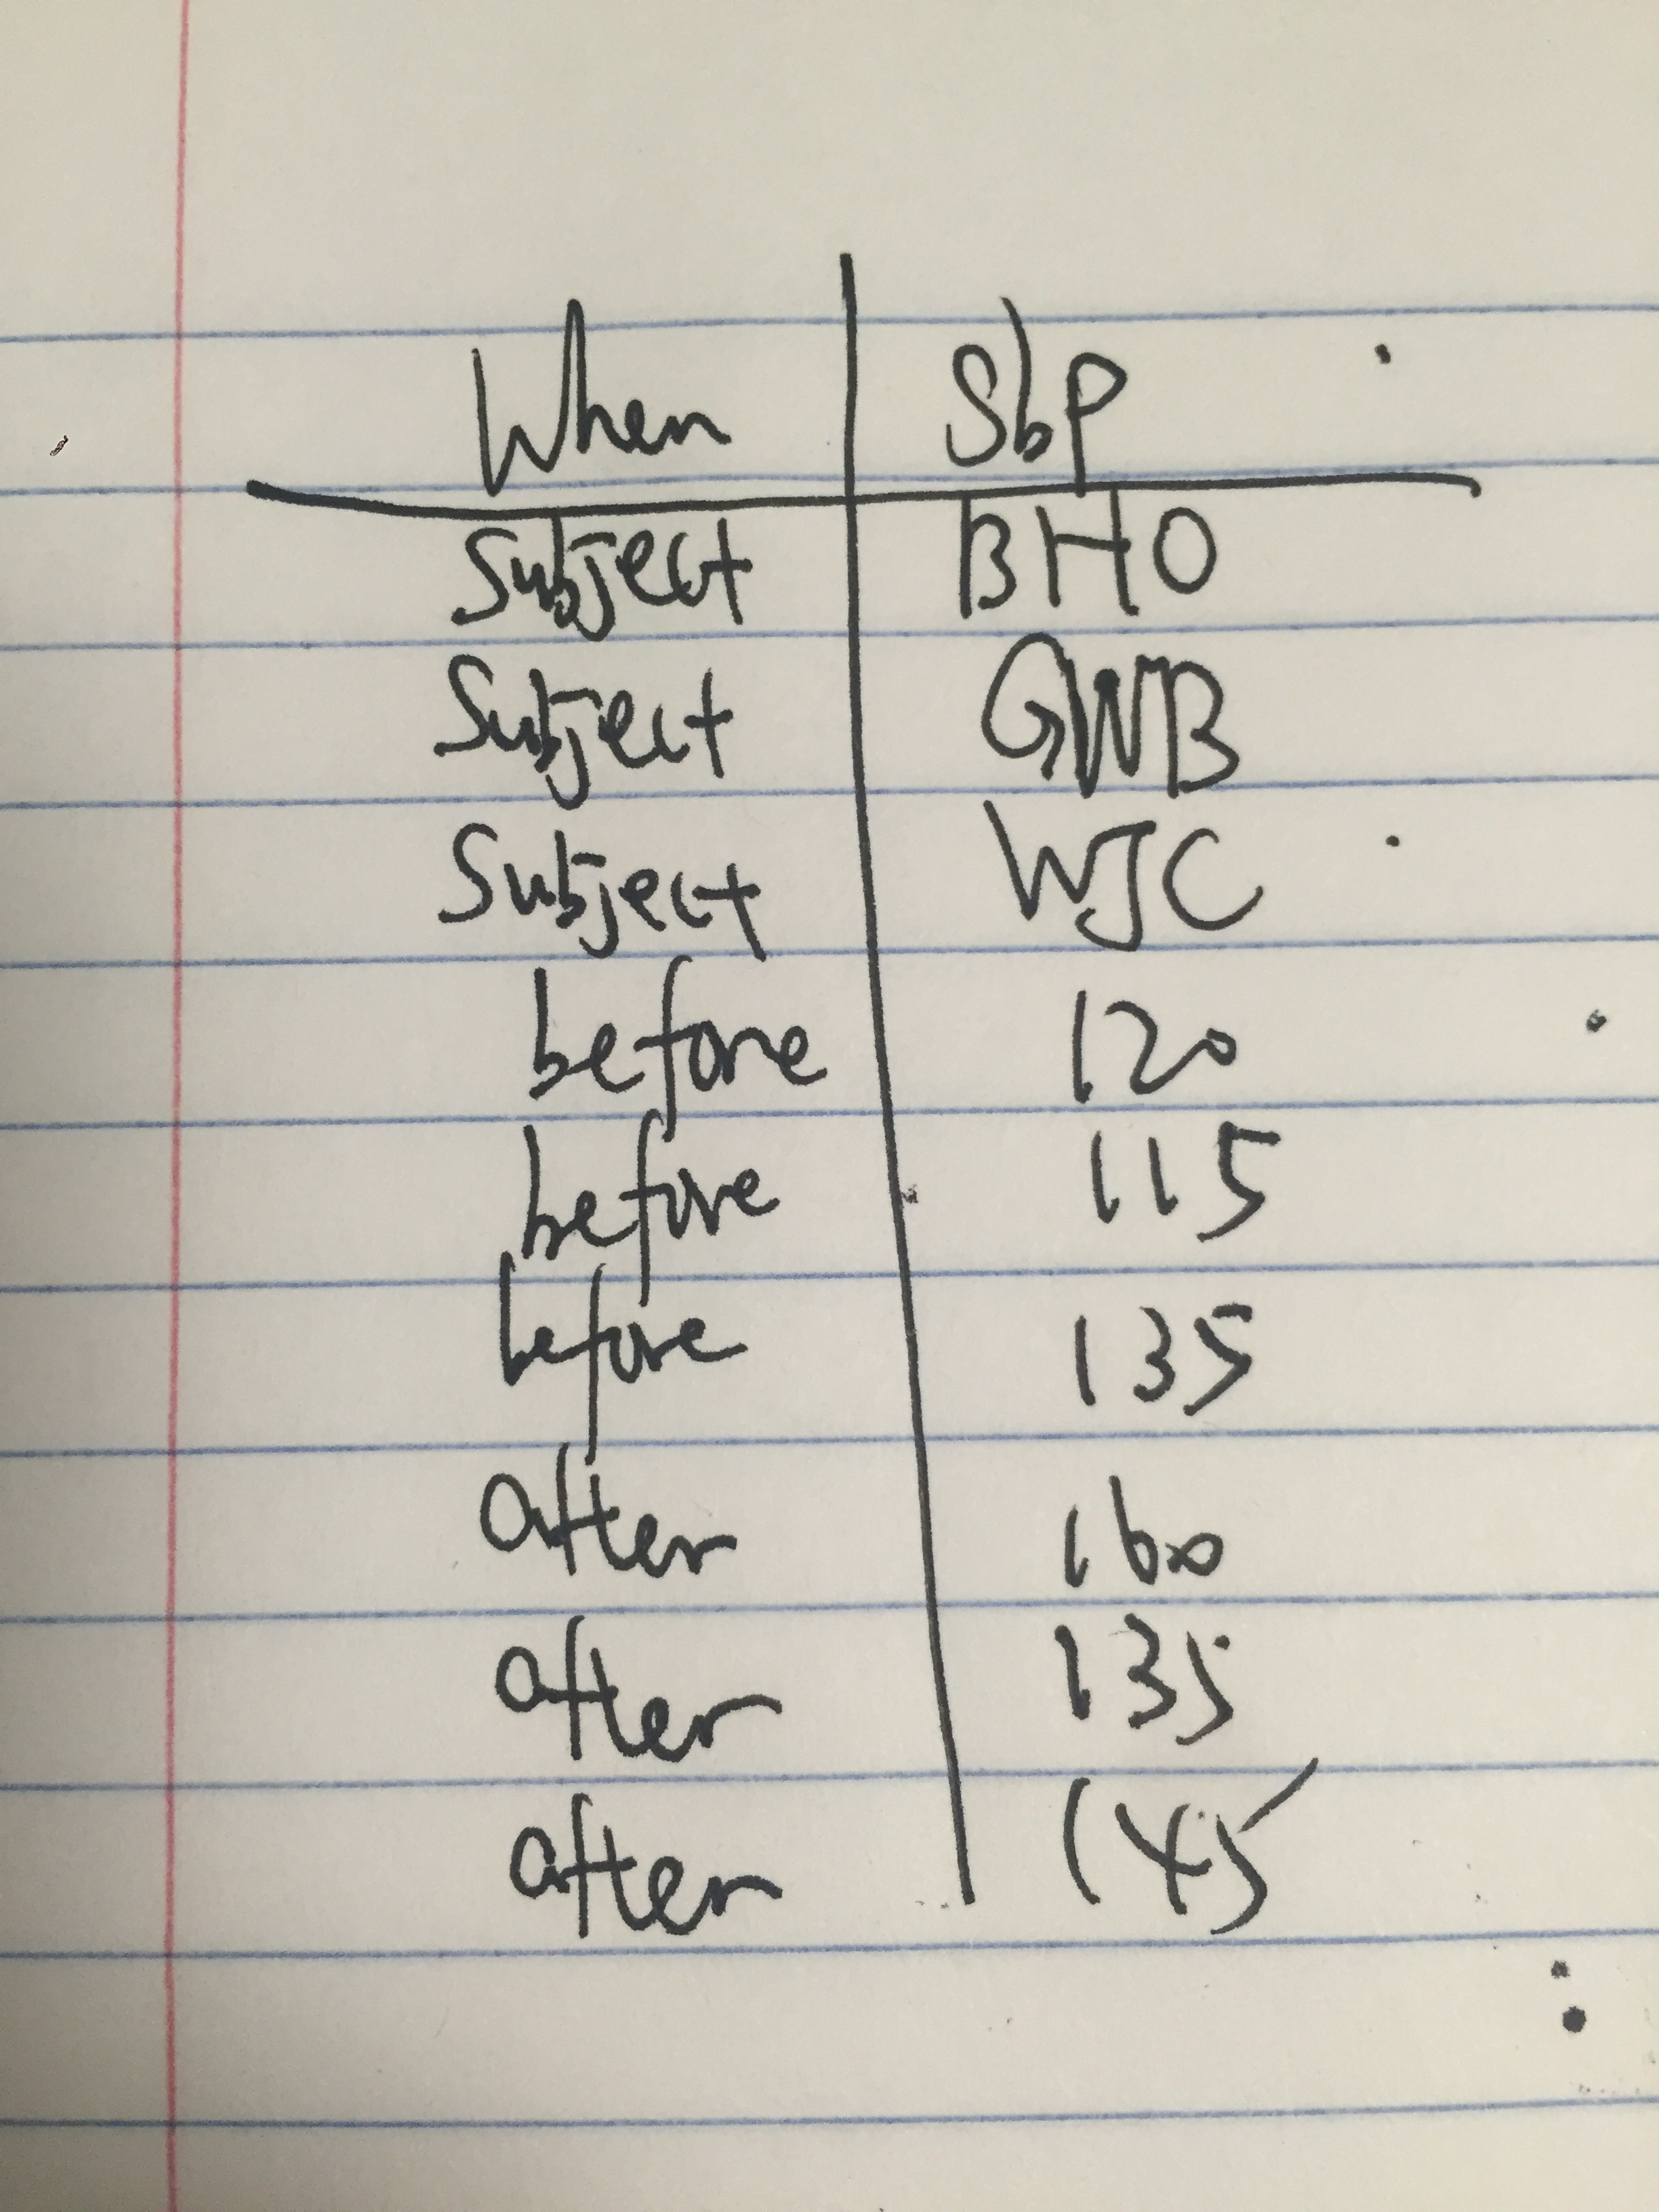 When Sbp
Subject BHO
Subject GWB
Subject WJC
before 120
before 115
before 135
after 160
after 135
after 145